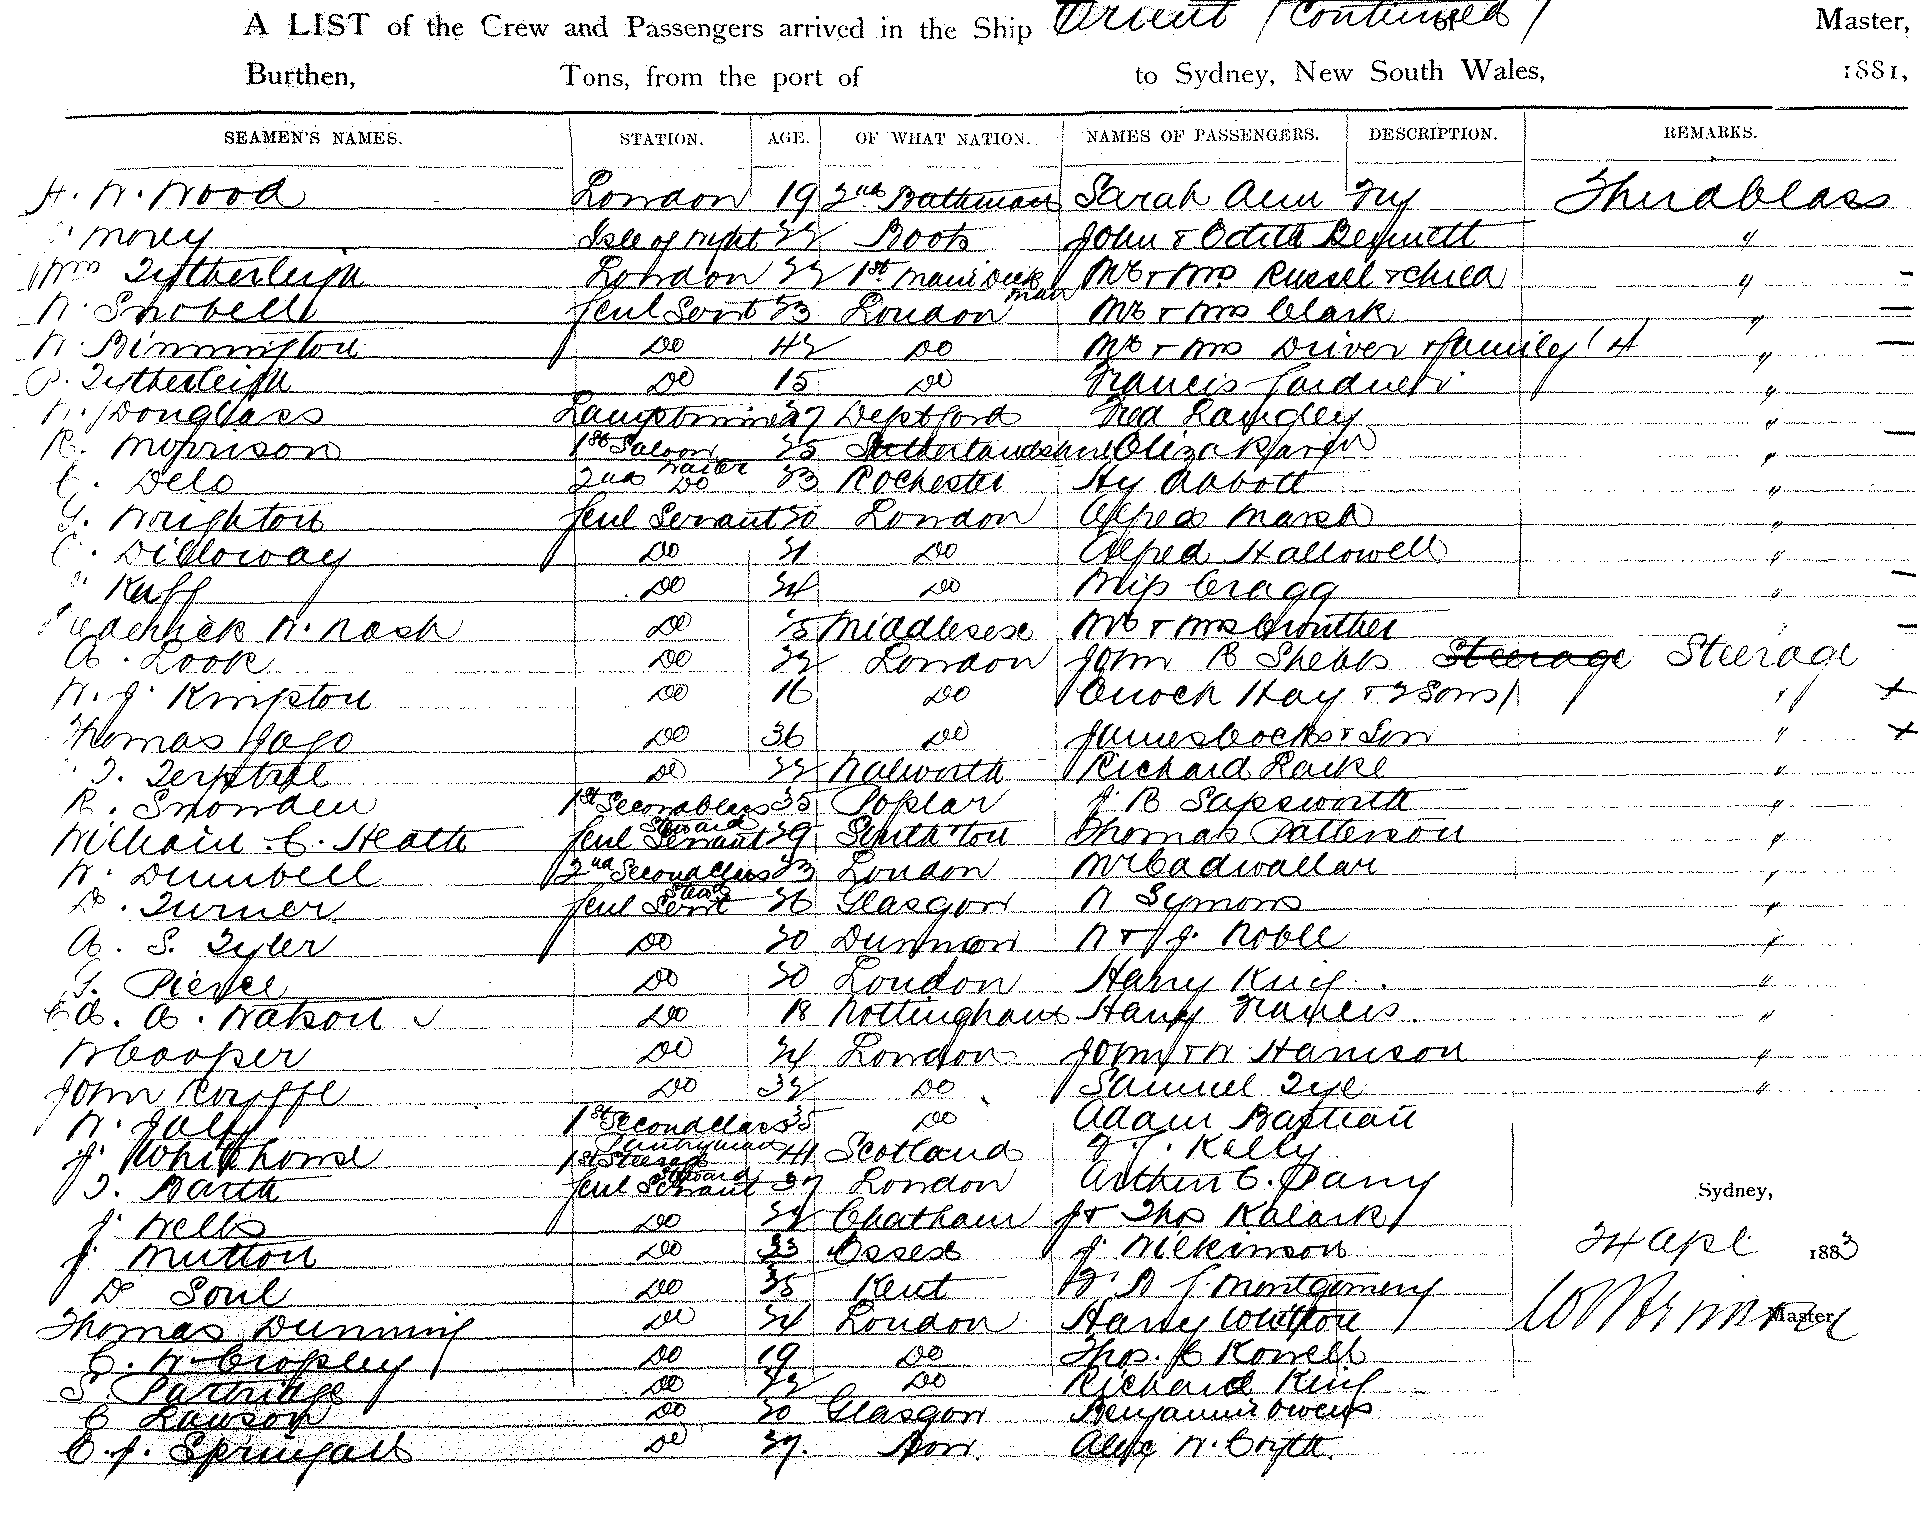 A LIST of the Crew and Passengers arrived in the Ship Orient (Continued) of Master,
Burthen, Tons, from the port of to Sydney, New South Wales, 1881,
SEAMEN'S NAMES. STATION. AGE. OF WHAT NATION. NAMES OF PASSENGERS. DESCRIPTION. REMARKS.
H. W. Wood London 19 2nd Bathman Sarah Ann Fry Third Class
" Morey Isle of Wight 22 Boots John & Edith Bennett "
Wm Titherleigh London 22 1st Main Deck man Mr & Mrs Russel & child "
W. Snobell Genl Servt 23 London Mr & Mrs Clark "
W. Binnington Do 42 Do Mr & Mrs Driver & family (4 "
Titherleigh Do 15 Do Francis Gardner "
W. Douglass Lamptrimmer 27 Deptford Fred Langley "
R. Morrison 1st Saloon waiter 25 Sutherlandshire Eliza "
Delo 2nd Do 23 Rochester Hy Abbott "
G. Wrighton Genl Servant 20 London Alfred Marsh "
C. Dilloway Do 21 Do Alfred Hallowell "
" Ruff Do 24 Do Miss Cragg "
Frederick W. Nash Do Middlesex Mr & Mrs Crowther "
A. Look Do 22 London John B Shebbs Steerage Steerage
W. J. Kimpton Do 16 Do Enoch Hay & 2 Sons "
Thomas Jago Do 36 Do James Cocks & Son "
Do 22 Walworth Richard Laike "
R. Snowden 1st Second Class Steward 35 Poplar J B Sapsworth "
William C. Heath Genl Servant 29 South'ton Thomas Patterson "
W. Dumbell 2nd Second Class Stewd 23 London Mr Cadwallar "
D. Turner Genl Servt 26 Glasgow W Symons "
A. S. Tyler Do 20 Dunmow W & J. Noble "
G. Pierce Do 20 London Harry King "
Ed. A. Watson Do 18 Nottingham Harry Francis "
W Cooper Do 24 London John & W Harrison "
John Do 32 Do Samuel Tye "
W. 1st Second Class Pantryman 35 Do Adam
J. Whitehouse 1st Steerage Steward 41 Scotland F. J. Kelly
T. Barth Genl Servant 27 London Arthur C. Parry
J. Wells Do 22 Chatham J & Thos Kalark Sydney,
J. Mutton Do 23 Essex J. Wilkinson 24 Apl 1883
D Soul Do 35 Kent Montgomery
Thomas Dunning Do 24 London Harry Whitton Master
C. W. Cropley Do 19 Do Thos. Kowell
S. Partridge Do 22 Do Richard King
C Lawson Do 20 Glasgow Benjamin Owens
E. J. Springall Do 27. Bow. Alex W. Cryth.